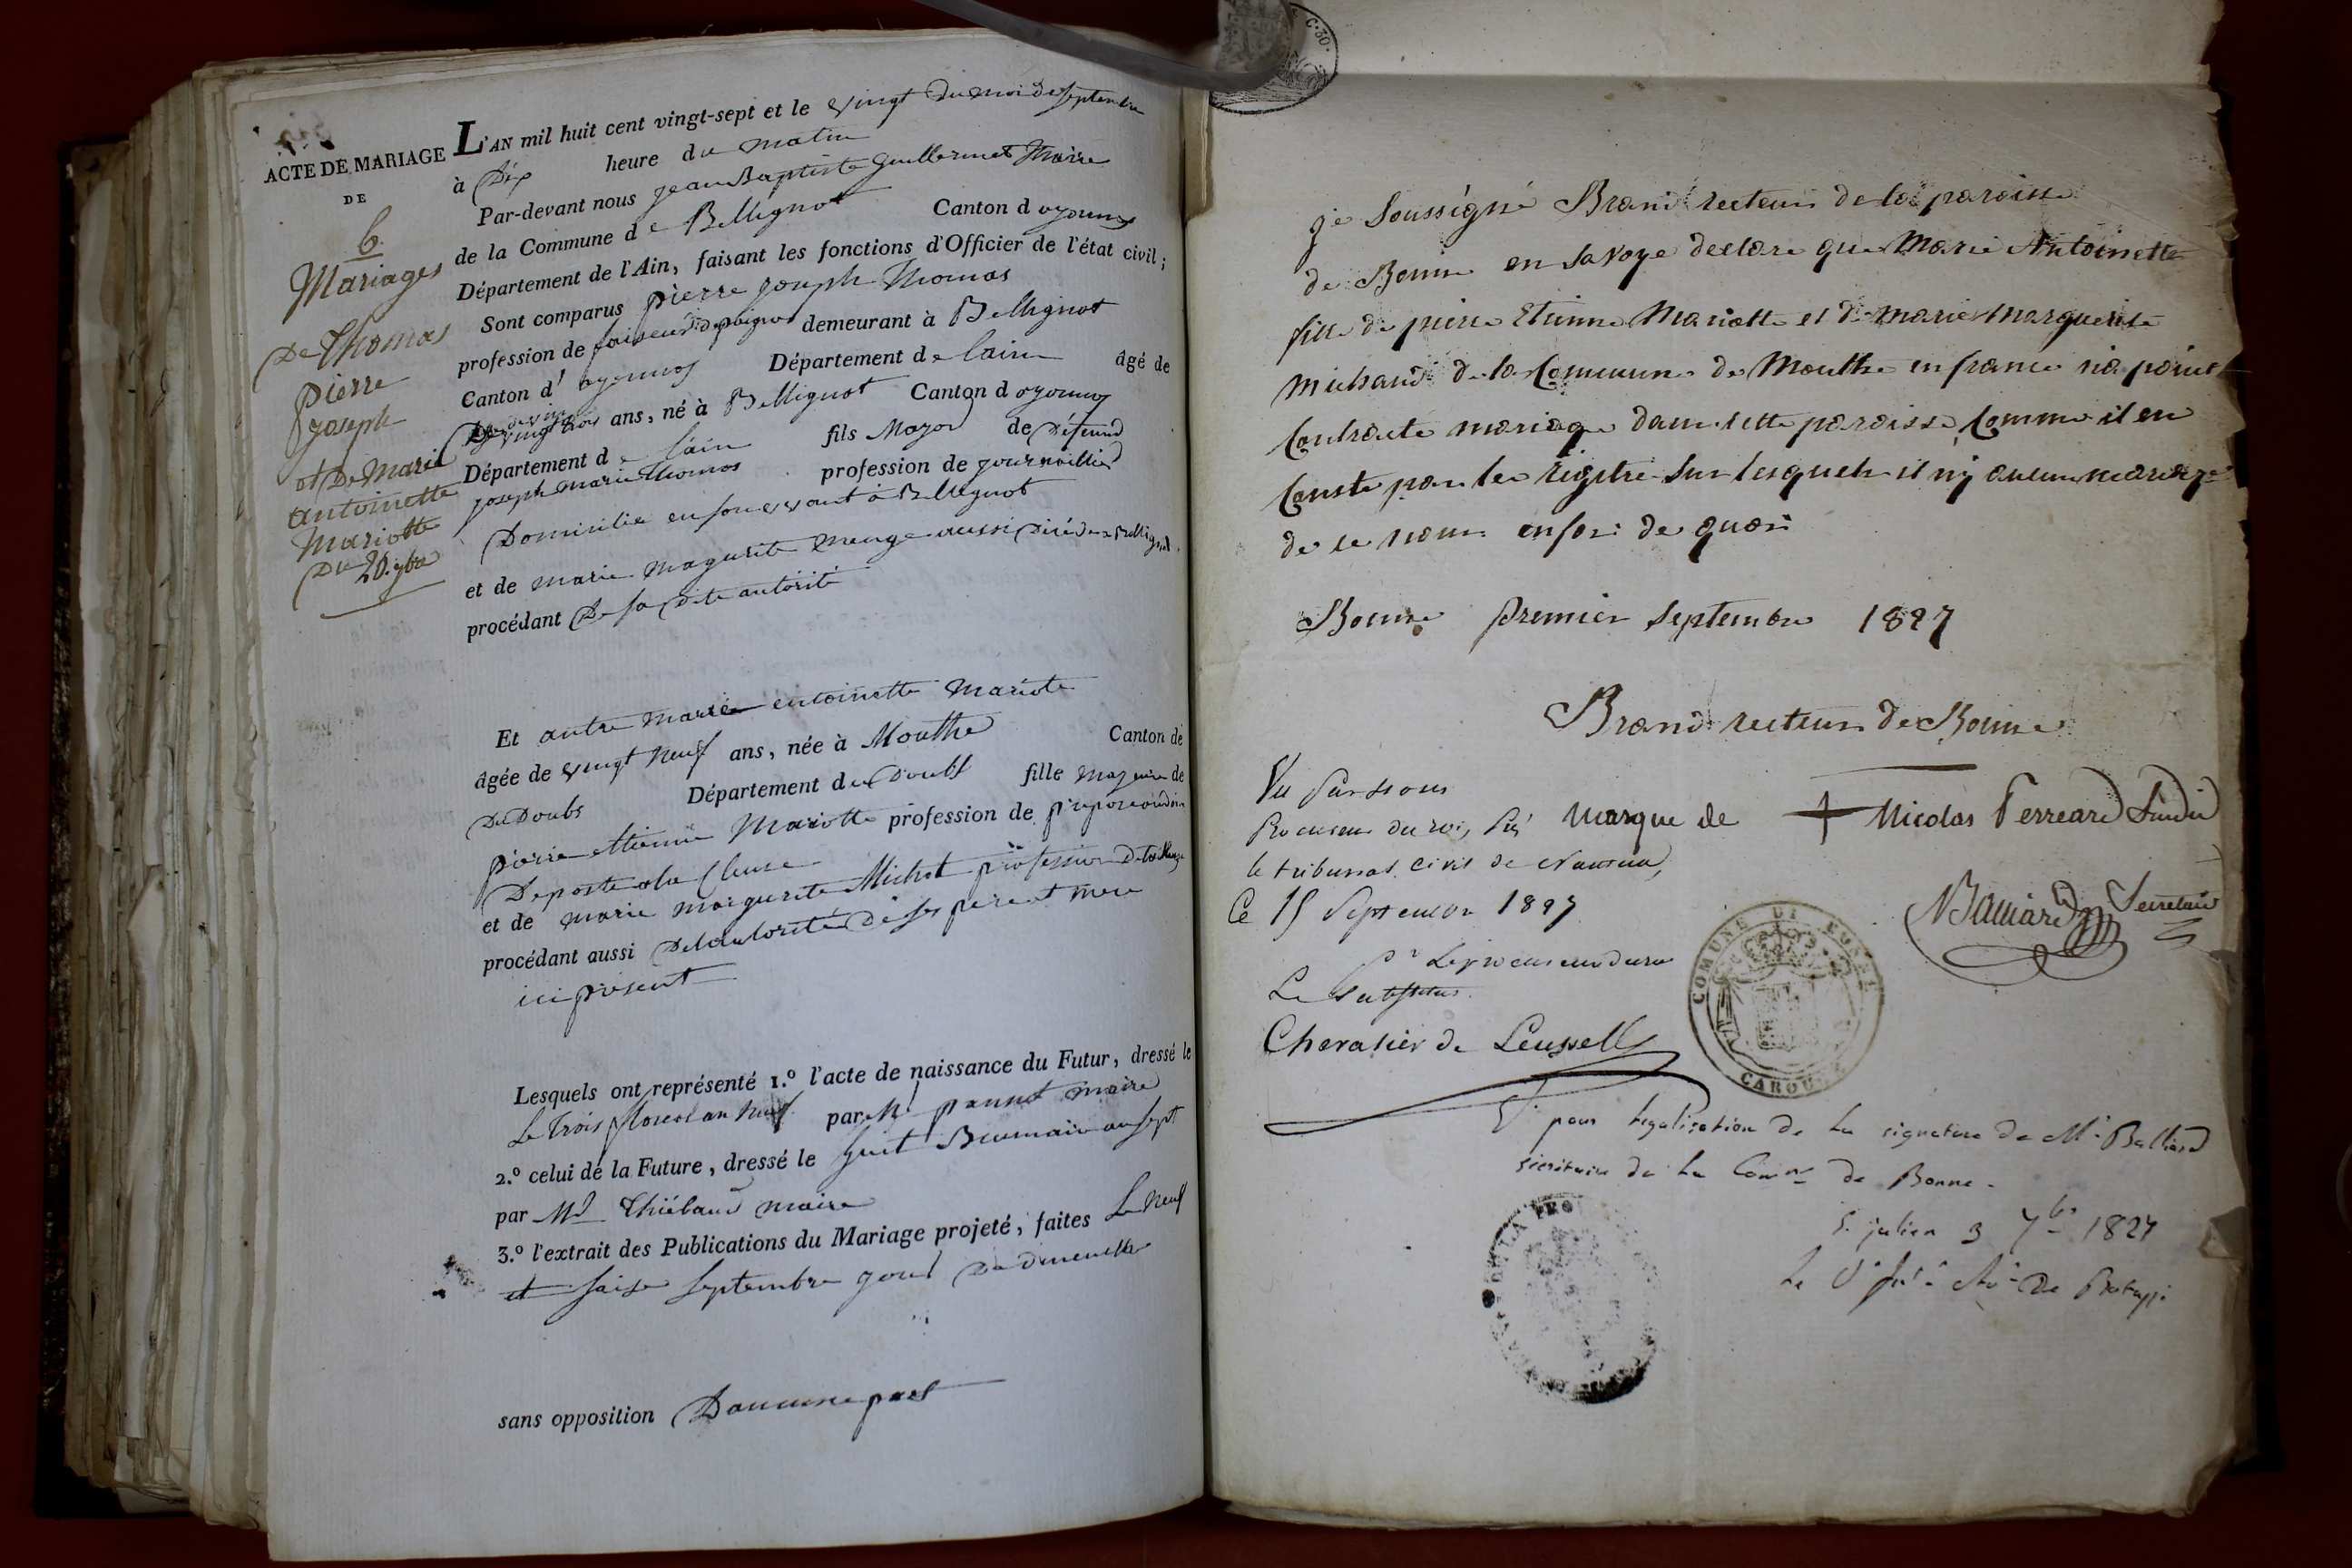 ACTE DE MARIAGE
DE
6.
Mariages
De Thomas
pierre
joseph
et De Marie
antoinette
Mariotte
Du 20. 7bre
L'AN mil huit cent vingt-sept et le vingt du moi de septembre
à Dix heure du matin
Par-devant nous jean Baptiste Guillermet Maire
de la Commune de Bellignot Canton d oyonnax
Département de l'Ain, faisant les fonctions d'Officier de l'état civil;
Sont comparus pierre joseph Thomas
profession de faiseur de peignes demeurant à Bellignot
Canton d' oyonnax Département de lain âgé de
vingt trois ans, né à Bellignot Canton d oyonnax
Département de lain fils Major de Défeund
joseph marie Thomas profession de journaillier
Domicilie en son vivant à Bellignot
et de marie magurite aussi Bellignot
procédant De sa dite autorité
Et autre marie entoinette Mariote
âgée de vingt neuf ans, née à Mouthe Canton de
Du Doubs Département du Doubs fille majeure de
pierre ettienne Mariotte profession de
Deposte ala Cluse
et de marie margurite Michot profession
procédant aussi Delautorité de ses pere et mere
ici présent
Lesquels ont représenté 1.º l'acte de naissance du Futur, dressé le
Le trois floreal an neuf par Mr pannet maire
2.º celui de la Future, dressé le huit Brumaire an sept
par Mr Thiébaud maire
3.º l'extrait des Publications du Mariage projeté, faites Le neuf
et saise septembre jour De dimenche
sans opposition Daucune part
je soussigné Brand recteur de la paroisse
de Bonne en savoye declare que Marie Antoinette
fille de pierre Etienne Mariotte et de marie Marguerite
michaud de la Commune de Mouthe en france n'a point
Contracté mariage dans cette paroisse, Comme il en
Conste par les régitre sur lesquels il n'y aucun mariage
de ce nom en foi de quoi
Bonne premier septembre 1827
Brand recteur de Bonne
Vu par nous
Procureur du roi, près
le tribunal civil de Nantua,
Ce 15 Septembre 1827
Pr Le procureur du roi
Le Substitut
Chevalier de Leusse
Marque de + Nicolas Perreard Sindic
Balliard Secretaire
COMUNE DI BONNE
CAROUGE
V. pour légalisation de la signature de Mr. Balliard
sécrétaire de la Comne de Bonne.
S. julien 3 7bre 1827